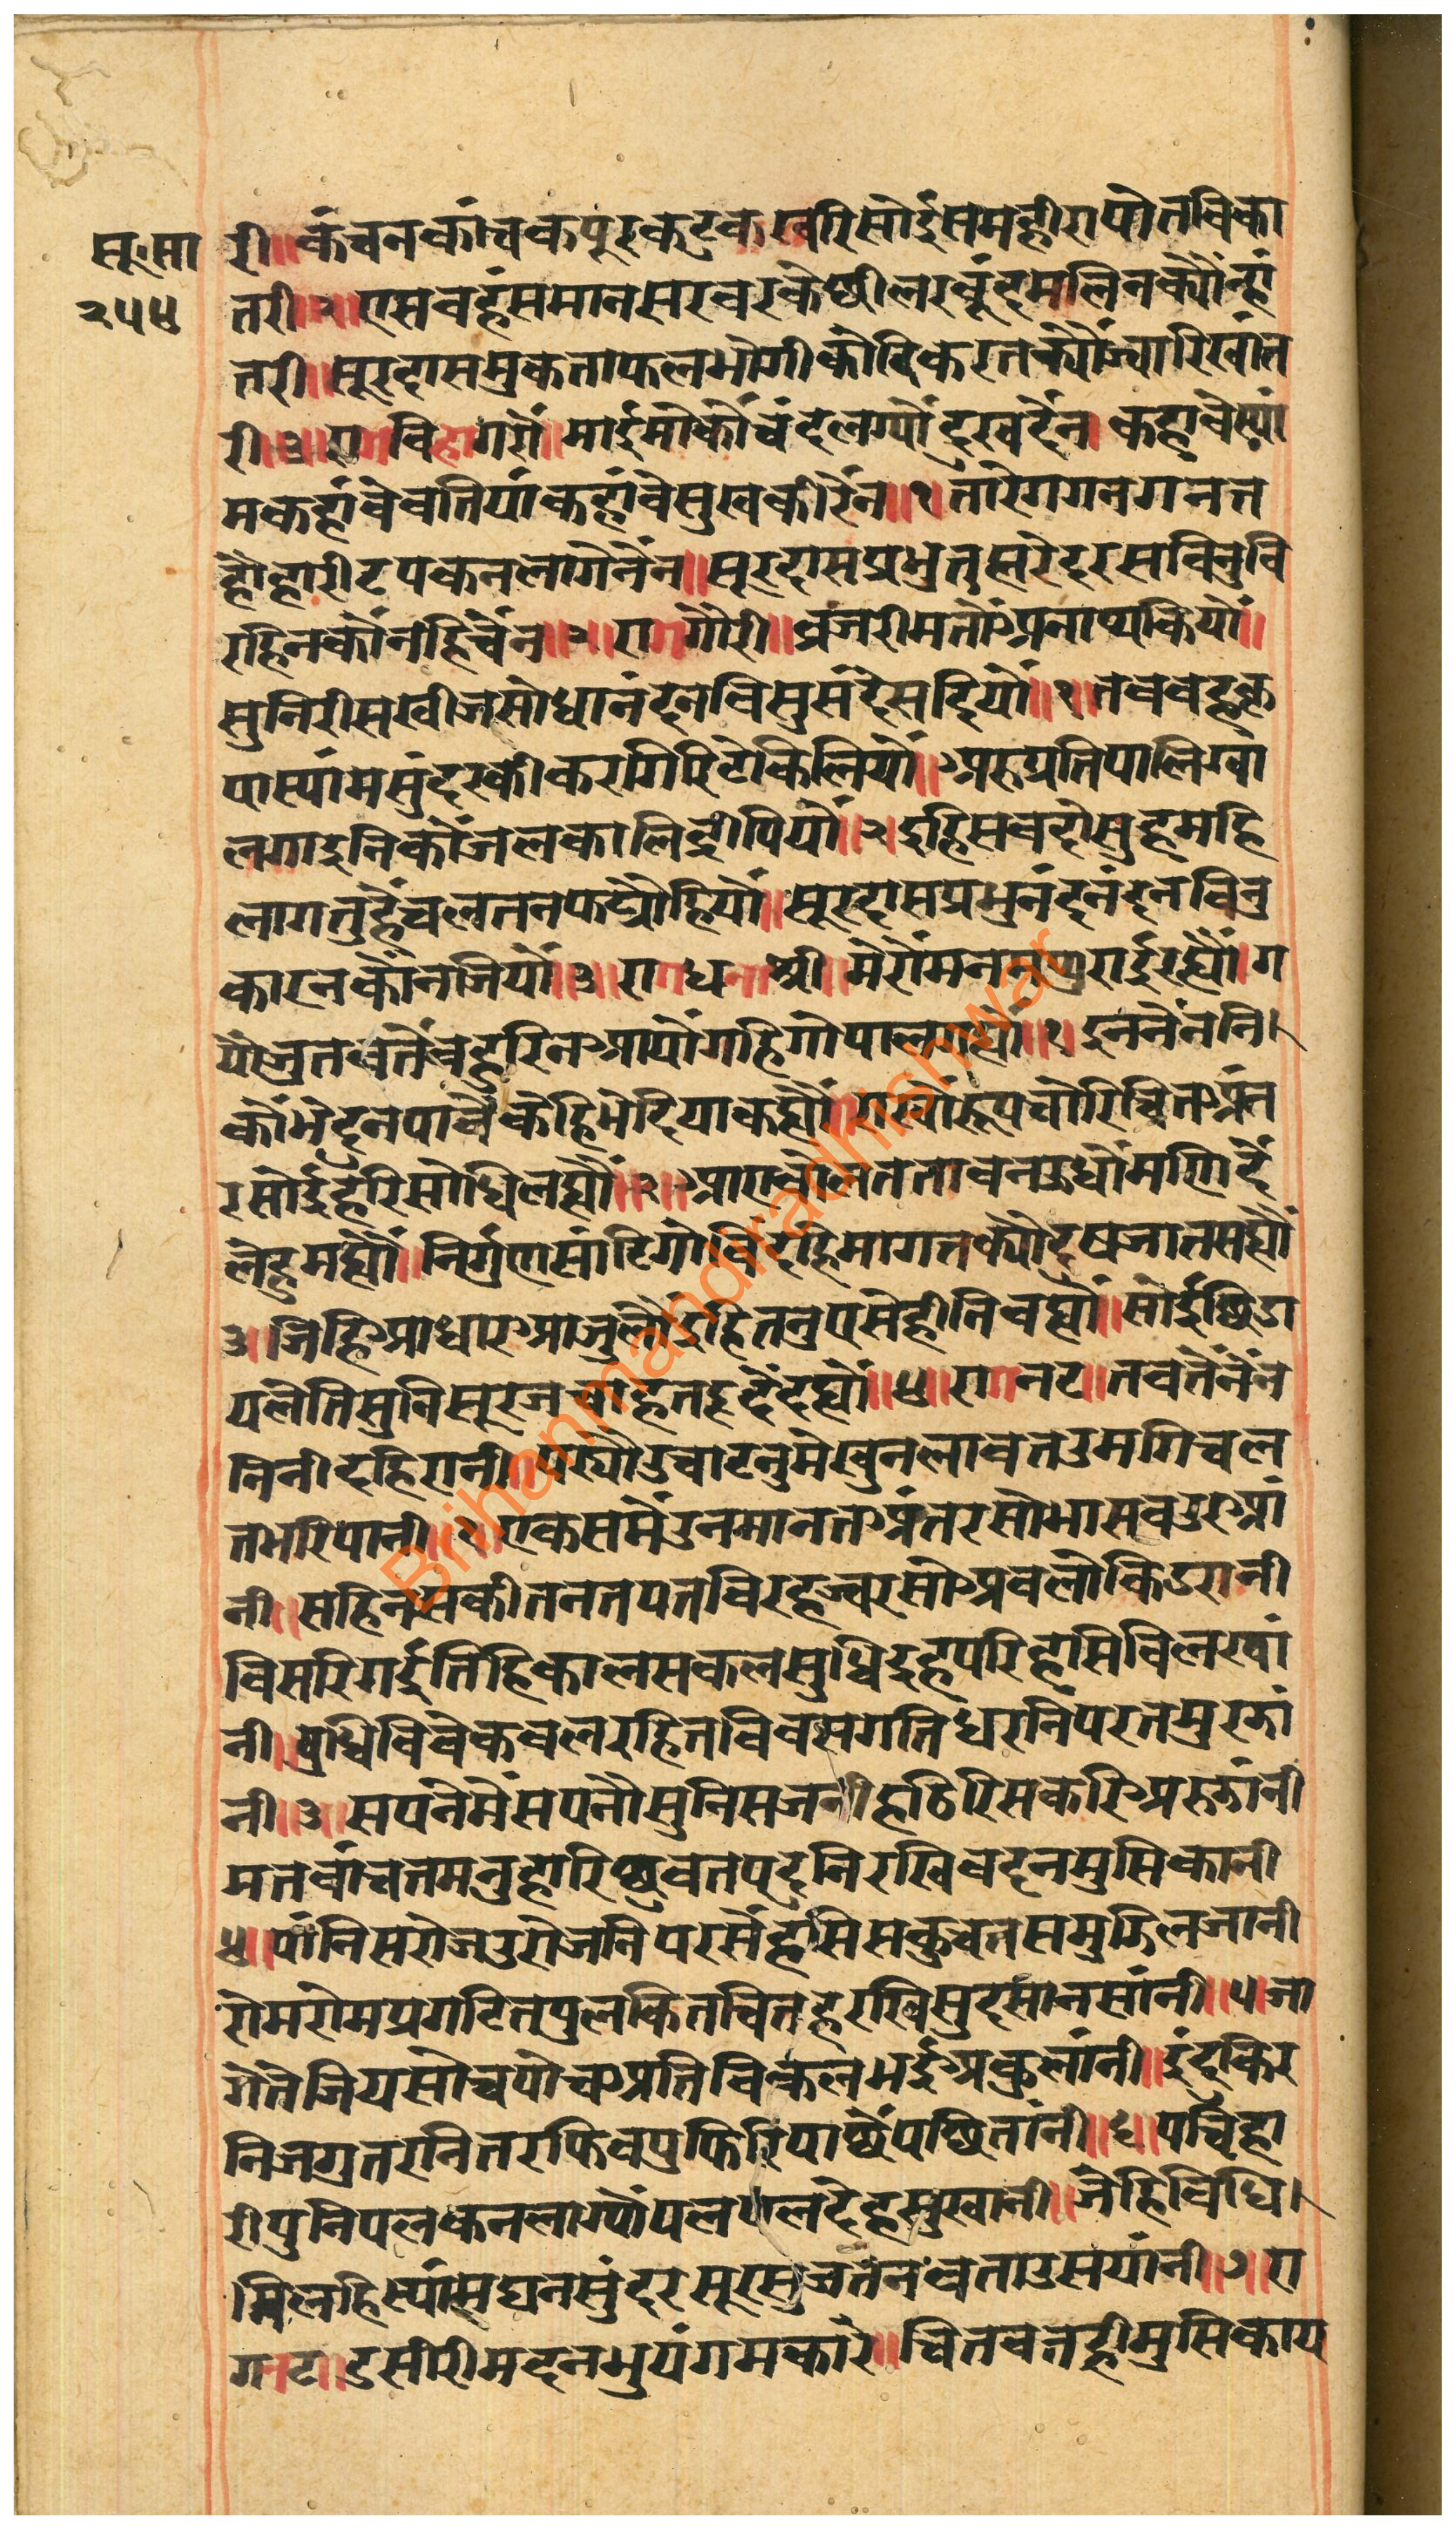 सू.सा
२५४
री॥कंचनकांचकपूरकटुकखरिसोईसमहीरापोतबिका
तरी२॥एसबहंसमानसरवरकेछीलरबूंदमलिनक्यौंन्हां
तरी॥सूरदासमुकताफलभोगीकौदिकरतक्यौंज्वारिखांत
री॥३॥रागबिहागरौ॥माईमोकौंचंदलग्यौंदुखदैंन।कहावेस्यां
मकहांवेबतियांकहांवेसुखकीरैंन॥१॥तारेगगनगनत
हौंहारीटपकनलागेनैंन॥सूरदासप्रभुतुह्मरेदरसबिनुबि
रहिनकौंनहिचैंन॥२॥रागगौरी॥ब्रजरीमनौंअनाथकियौं॥
सुनिरीसखीजसोधानंदनबिसुसंदेसदियौं॥१॥तबबहकृ
पास्यांमसुंदरकीकरगिरिटेकिलियौं॥अरुप्रतिपालिग्वा
लगाइनिकौंजलकालिंद्रीपियौं॥२॥इहिसबदोसुहमहि
लागतुहैंचलतनफट्यौहियौं॥सूरदासप्रभुनंदनंदनबिनु
कारनकौंनजियौं॥३॥रागधनाश्री॥मेरौंमनमथुराईरह्यौं॥ग
यौजुतबतैंबहुरिनआयौंगहिगोपालगह्यौं॥१॥इननैंननि
कौंभेदनपावैंकेहिभेदियाकह्यौं॥राख्यौंरूपचोरिचितअंत
रसोईहरिसोधिलह्यौं॥२॥आएबोलतताबनऊधौंमणिदैं
लेहुमह्यौं॥निर्गुणसांटिगोबिंदहिमागतक्यौदुषजातसह्यौं
३॥जिहिआधारआजुलौंइहितनुएसेहीनिबह्यौं॥सोईछिडा
यलेतिसुनिसूरजचाहतहृदैंदह्यौं॥४॥रागनट॥तबतैंनैंन
निनीदहिरानी॥पर्यौउचाटनुमेखुनलावतउमगिचल
तभरिपानी॥१॥एकसमैंउनमानतअंतरसोभासबउरआं
नी॥सहिनसकीतनतपतबिरहज्वरसोअवलोकिडरानी
बिसरिगईतिहिकालसकलसुधिइहपरिहासिबिलखां
नी॥बुधिविवेकबलरहितबिबसगतिधरनिपरतमुरझां
नी॥३॥सपनेमेंसपनौसुनिसजनीहठिरिसकरिअरुझांनी
मतबांचतमनुहारिछुवतपदनिरखिबदनमुसिकानी
४॥पांनिसरोजउरोजनिपरसेंहसिसकुचतसमुझिलजानी
रोमरोमप्रगटितपुलकितचितहरखिसुदसांनसांनी॥५॥जा
गेतेजियसोचपोचअतिबिकलभईअकुलांनी॥इंदकिर
निजगुतरनितरफिबपुफिरिपाछैंपछितांनी॥६॥पचिहा
रीपुनिपलकनलाग्यौंपलपलदेहसुखानी॥जेहिबिधि
मिलहिस्यांमघनसुंदरसूरसुजतनबताउसयांनी॥७॥रा
गनट॥डसीरीमदनभुयंगमकारे॥चितवतहीमुसिकाय